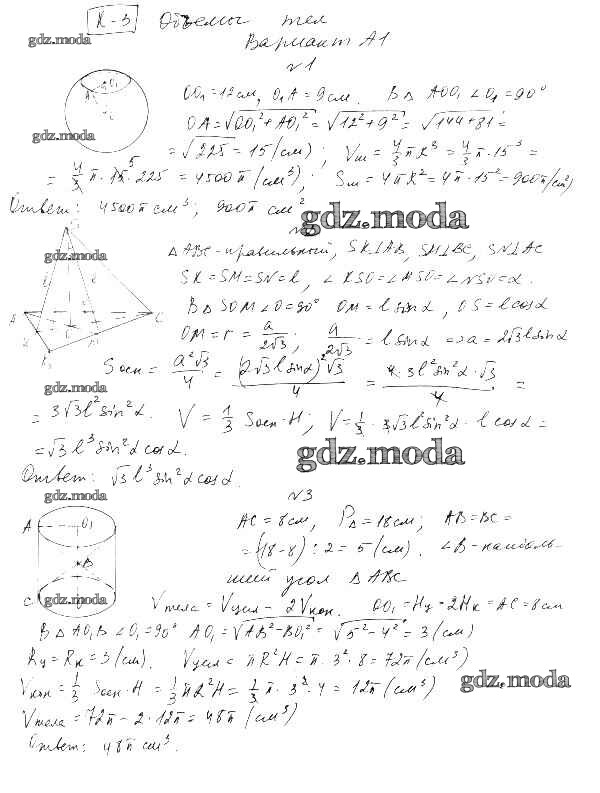 К-3 Объемы тел
gdz.moda
Вариант А1
№1
A O₁
OO₁ = 12 см, O₁A = 9 см. В Δ AOO₁ ∠O₁ = 90°
gdz.moda
OA = √OO₁² + AO₁² = √12² + 9² = √144 + 81 =
= √225 = 15 (см); Vш = 4/3 πR³ = 4/3 π·15³ =
= 4/3 π · 15 · 225 = 4500π (см³); Sш = 4πR² = 4π·15² = 900π (см²)
Ответ: 4500π см³; 900π см²
gdz.moda
№2
Δ ABC - правильный, SK⊥AB, SM⊥BC, SN⊥AC
gdz.moda
SK = SM = SN = l, ∠KSO = ∠MSO = ∠NSO = α.
A C B
В Δ SOM ∠O = 90° OM = l sinα, OS = l cosα
OM = r = a/2√3; a/2√3 = l sinα => a = 2√3 l sinα
Sосн = a²√3/4 = (2√3 l sinα)²√3/4 = 4·3l² sin²α·√3/4 =
gdz.moda
= 3√3 l² sin²α. V = 1/3 Sосн·H; V = 1/3 · 3√3 l² sin²α · l cosα =
= √3 l³ sin²α cosα.
gdz.moda
Ответ: √3 l³ sin²α cosα.
gdz.moda
№3
A O₁
AC = 8 см, PΔ = 18 см; AB = BC =
= (18 - 8) : 2 = 5 (см). ∠B - наиболь-
B
ший угол Δ ABC
C gdz.moda
Vтела = Vцил - 2Vкон. OO₁ = Hц = 2Hк = AC = 8 см
В Δ AO₁B ∠O₁ = 90° AO₁ = √AB² - BO₁² = √5² - 4² = 3 (см)
Rц = Rк = 3 (см). Vцил = πR²H = π · 3² · 8 = 72π (см³)
gdz.moda
Vкон = 1/3 Sосн·H = 1/3 πR²H = 1/3 π · 3² · 4 = 12π (см³)
Vтела = 72π - 2 · 12π = 48π (см³)
Ответ: 48π см³.